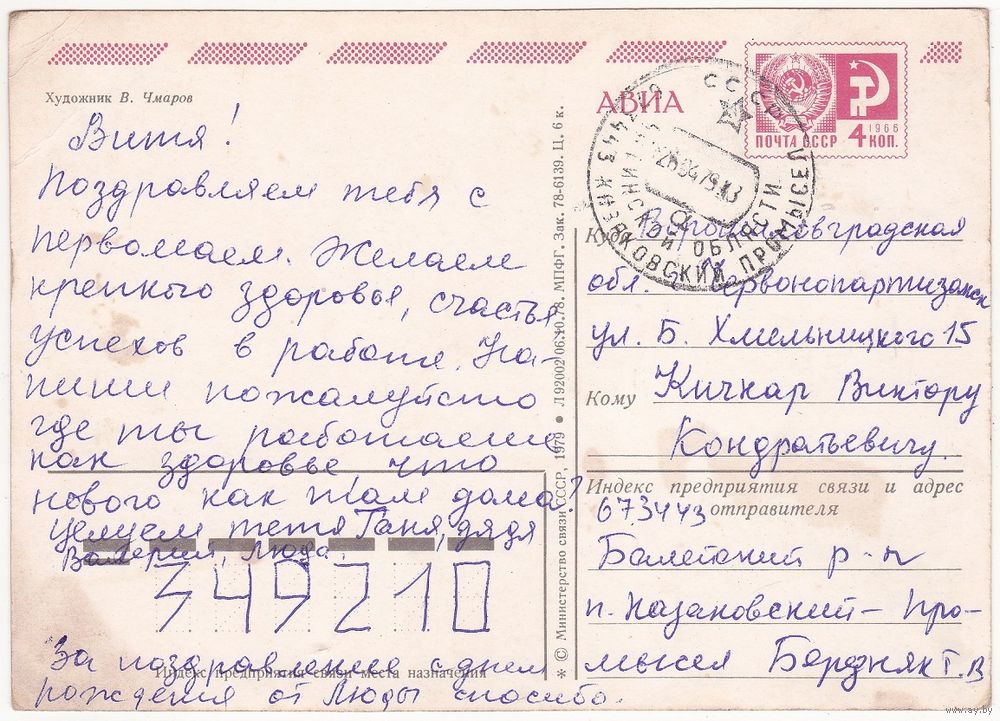 Художник В. Чмаров
Витя!
Поздравляем тебя с
первомаем. Желаем
крепкого здоровья, счастья
успехов в работе. На-
пиши пожалуйсто
где ты работаеш
как здоровье что
нового как там дома?
целуем тетя Ганя, дядя
Валерий, Люда.
349210
Индекс предприятия связи места назначения
За поздравление с днем
рождения от Люды спосибо.
* © Министерство связи СССР, 1979 • Л 92002 06.10.78. МПФГ. Зак. 78-6139. Ц. 6 к.
АВИА
ПОЧТА СССР 4 КОП.
1966
СССР
ОБЛАСТИ
ПРОМЫСЕЛ
Куда Ворошиловградская
обл. г. Червонопартизанск
ул. Б. Хмельницкого 15
Кому Кичкар Виктору
Кондратьевичу.
Индекс предприятия связи и адрес
отправителя
673443
Балейский р-н
п. Казановский-Про-
мысел Бердняк Г. В
www.ay.by